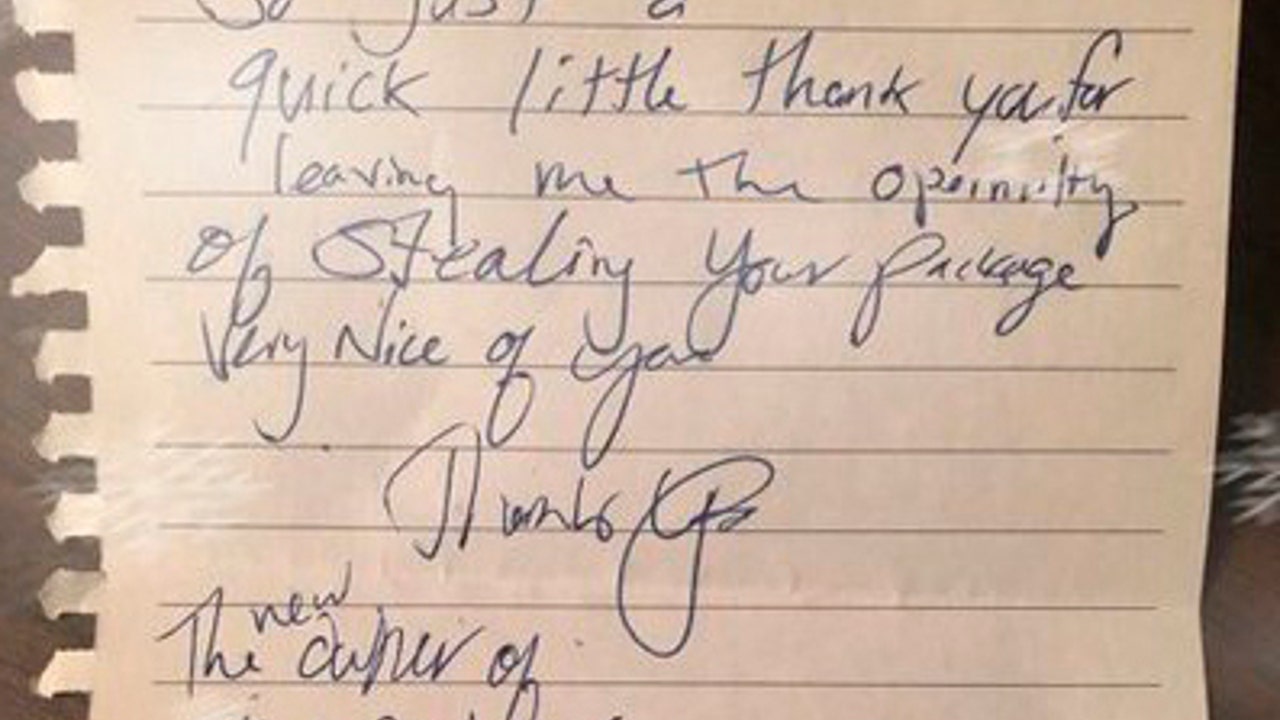 So just a
quick little thank you for
leaving me the
of Stealing your package
Very Nice of you
Thanks
The new owner of